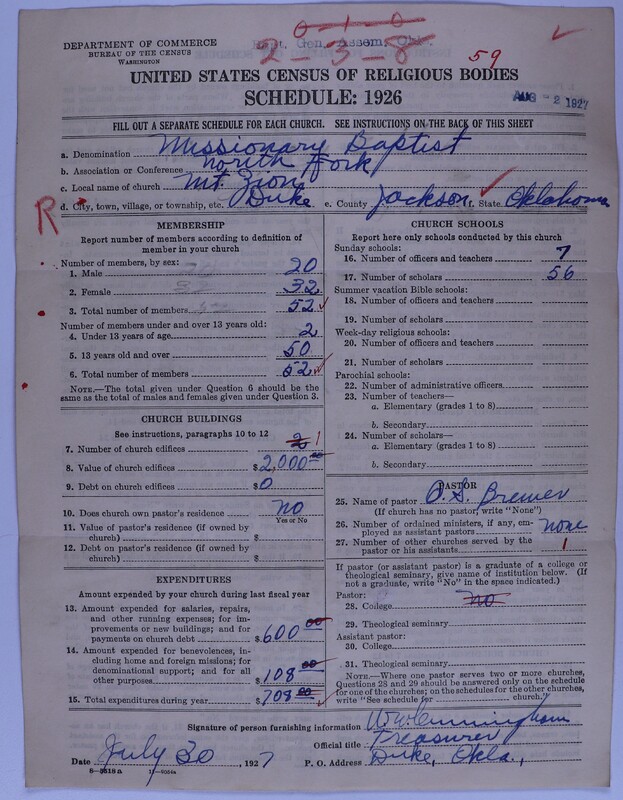 0-1-0
DEPARTMENT OF COMMERCE
BUREAU OF THE CENSUS
WASHINGTON
Gen. Assem.
2-3-8
59
UNITED STATES CENSUS OF RELIGIOUS BODIES
SCHEDULE: 1926
AUG -2 1927
FILL OUT A SEPARATE SCHEDULE FOR EACH CHURCH. SEE INSTRUCTIONS ON THE BACK OF THIS SHEET
a. Denomination Missionary Baptist
b. Association or Conference North Fork
c. Local name of church Mt. Zion
d. City, town, village, or township, etc. Duke e. County Jackson f. State Oklahoma
R
MEMBERSHIP
Report number of members according to definition of
member in your church
Number of members, by sex:
1. Male 20
2. Female 32
3. Total number of members 52
Number of members under and over 13 years old:
4. Under 13 years of age 2
5. 13 years old and over 50
6. Total number of members 52
NOTE.—The total given under Question 6 should be the
same as the total of males and females given under Question 3.
CHURCH BUILDINGS
See instructions, paragraphs 10 to 12
7. Number of church edifices 2 1
8. Value of church edifices $2,000 00
9. Debt on church edifices $0
10. Does church own pastor's residence no
Yes or No
11. Value of pastor's residence (if owned by
church) $
12. Debt on pastor's residence (if owned by
church) $
EXPENDITURES
Amount expended by your church during last fiscal year
13. Amount expended for salaries, repairs,
and other running expenses; for im-
provements or new buildings; and for
payments on church debt $600 00
14. Amount expended for benevolences, in-
cluding home and foreign missions; for
denominational support; and for all
other purposes $108 00
15. Total expenditures during year $708 00
CHURCH SCHOOLS
Report here only schools conducted by this church
Sunday schools:
16. Number of officers and teachers 7
17. Number of scholars 56
Summer vacation Bible schools:
18. Number of officers and teachers
19. Number of scholars
Week-day religious schools:
20. Number of officers and teachers
21. Number of scholars
Parochial schools:
22. Number of administrative officers
23. Number of teachers—
a. Elementary (grades 1 to 8)
b. Secondary
24. Number of scholars—
a. Elementary (grades 1 to 8)
b. Secondary
PASTOR
25. Name of pastor Brewer
(If church has no pastor, write "None")
26. Number of ordained ministers, if any, em-
ployed as assistant pastors none
27. Number of other churches served by the
pastor or his assistants 1
If pastor (or assistant pastor) is a graduate of a college or
theological seminary, give name of institution below. (If
not a graduate, write "No" in the space indicated.)
Pastor:
28. College no
29. Theological seminary
Assistant pastor:
30. College
31. Theological seminary
NOTE.—Where one pastor serves two or more churches,
Questions 28 and 29 should be answered only on the schedule
for one of the churches; on the schedules for the other churches,
write "See schedule for church."
Signature of person furnishing information W. W. Cunningham
Official title Treasurer
Date July 30, 1927 P. O. Address Duke, Okla.,